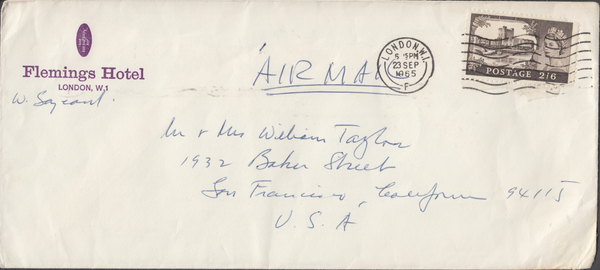 fm
Flemings Hotel
LONDON, W.1
AIR MAI
LONDON. W.1.
PM
23 SEP
1965
-F-
POSTAGE 2/6
Mr & Mrs William Taylor
1932 Baker Street
San Francisco, California 94115
U.S.A